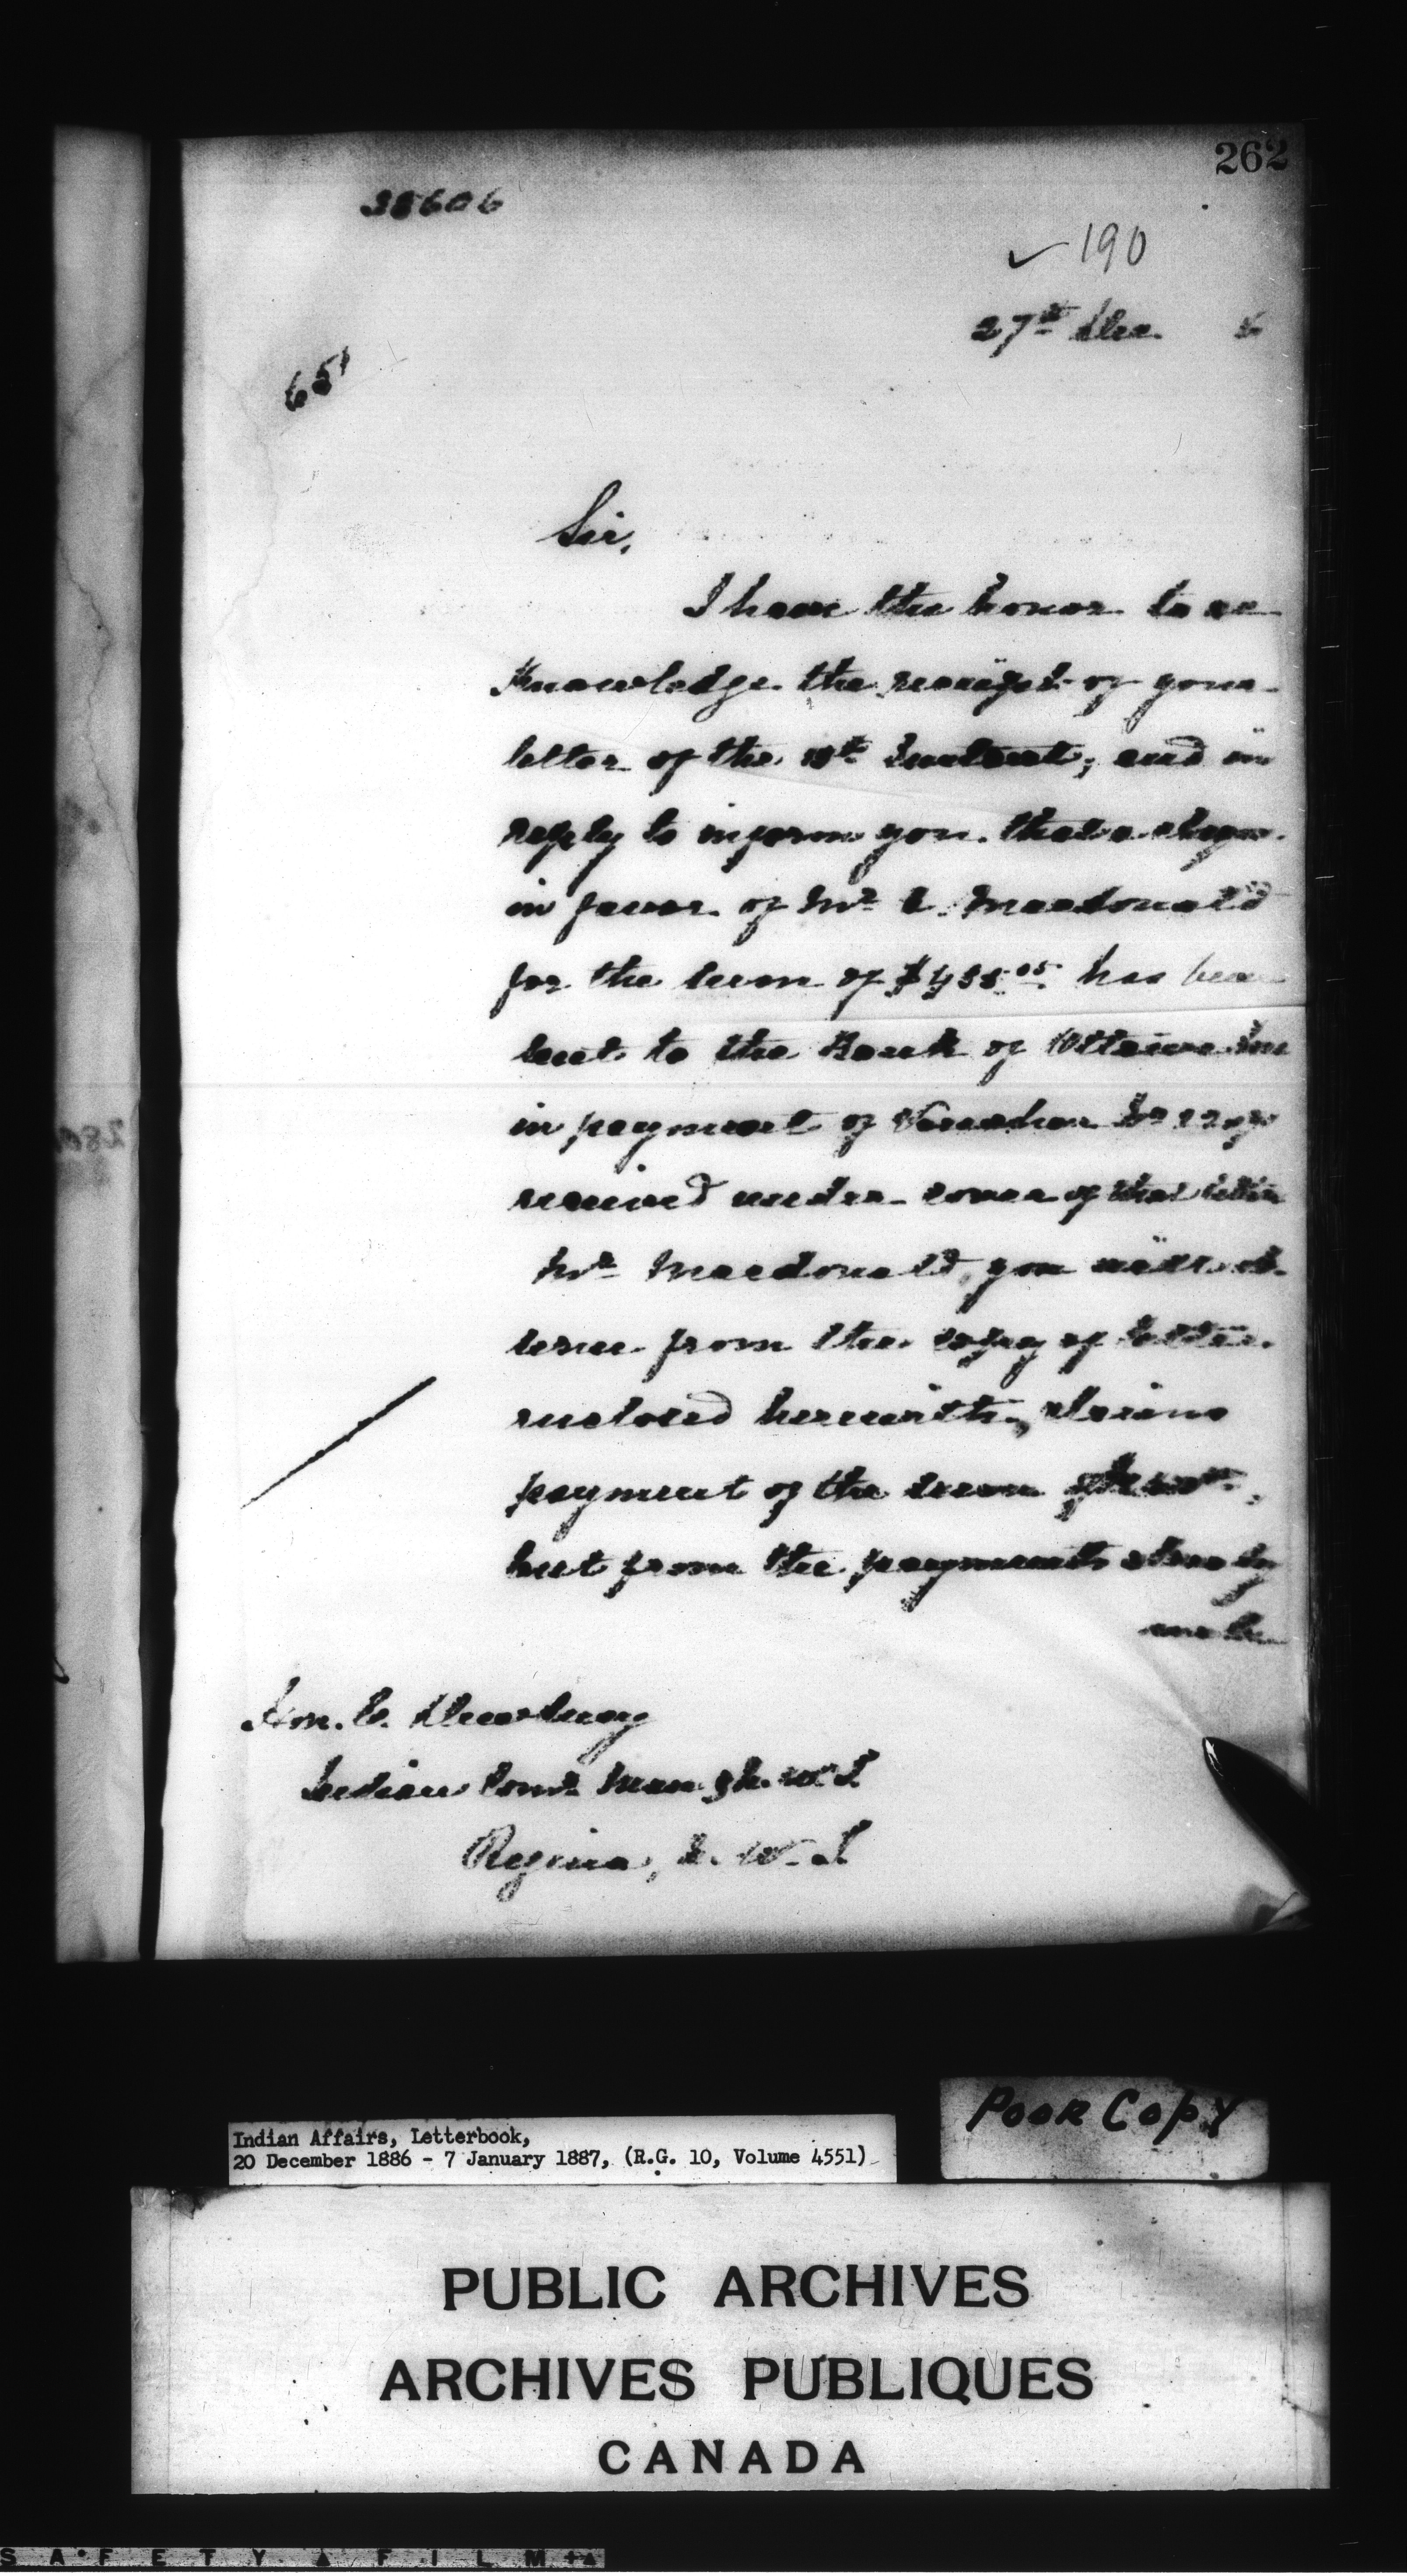 262
38606
✓ 190
27th Dec. 6
651
Sir,
I have the honor to ac
knowledge the receipt of your
letter of the instant, and in
reply to inform you that a cheque
in favor of Mr Macdonald
for the sum of has been
sent to the Bank of Ottawa
in payment of Voucher No
received under cover of that letter
Mr Macdonald, you will ob
serve from the copy of letter
enclosed herewith, claims
payment of the sum
but from the payments already
made
Hon. E. Dewdney
Indian Comr Man & N.W.T
Regina, N.W.T
Poor Copy
Indian Affairs, Letterbook,
20 December 1886 - 7 January 1887, (R.G. 10, Volume 4551)
PUBLIC ARCHIVES
ARCHIVES PUBLIQUES
CANADA
SAFETY FILM